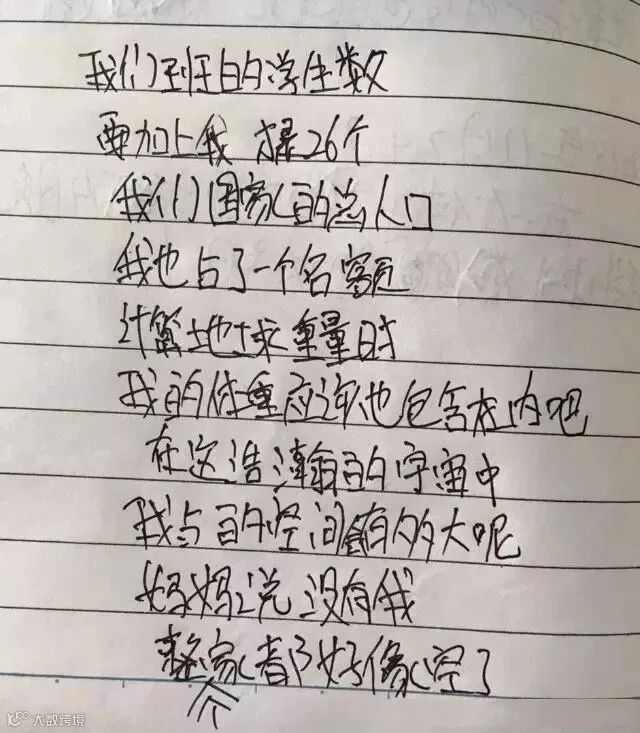 我们班的学生数
要加上我才是26个
我们国家的总人口
我也占了一个名额
计算地球重量时
我的体重应该也包含在内吧
在这浩瀚的宇宙中
我占的空间有多大呢
妈妈说没有我
整个家都好像空了
大数跨境